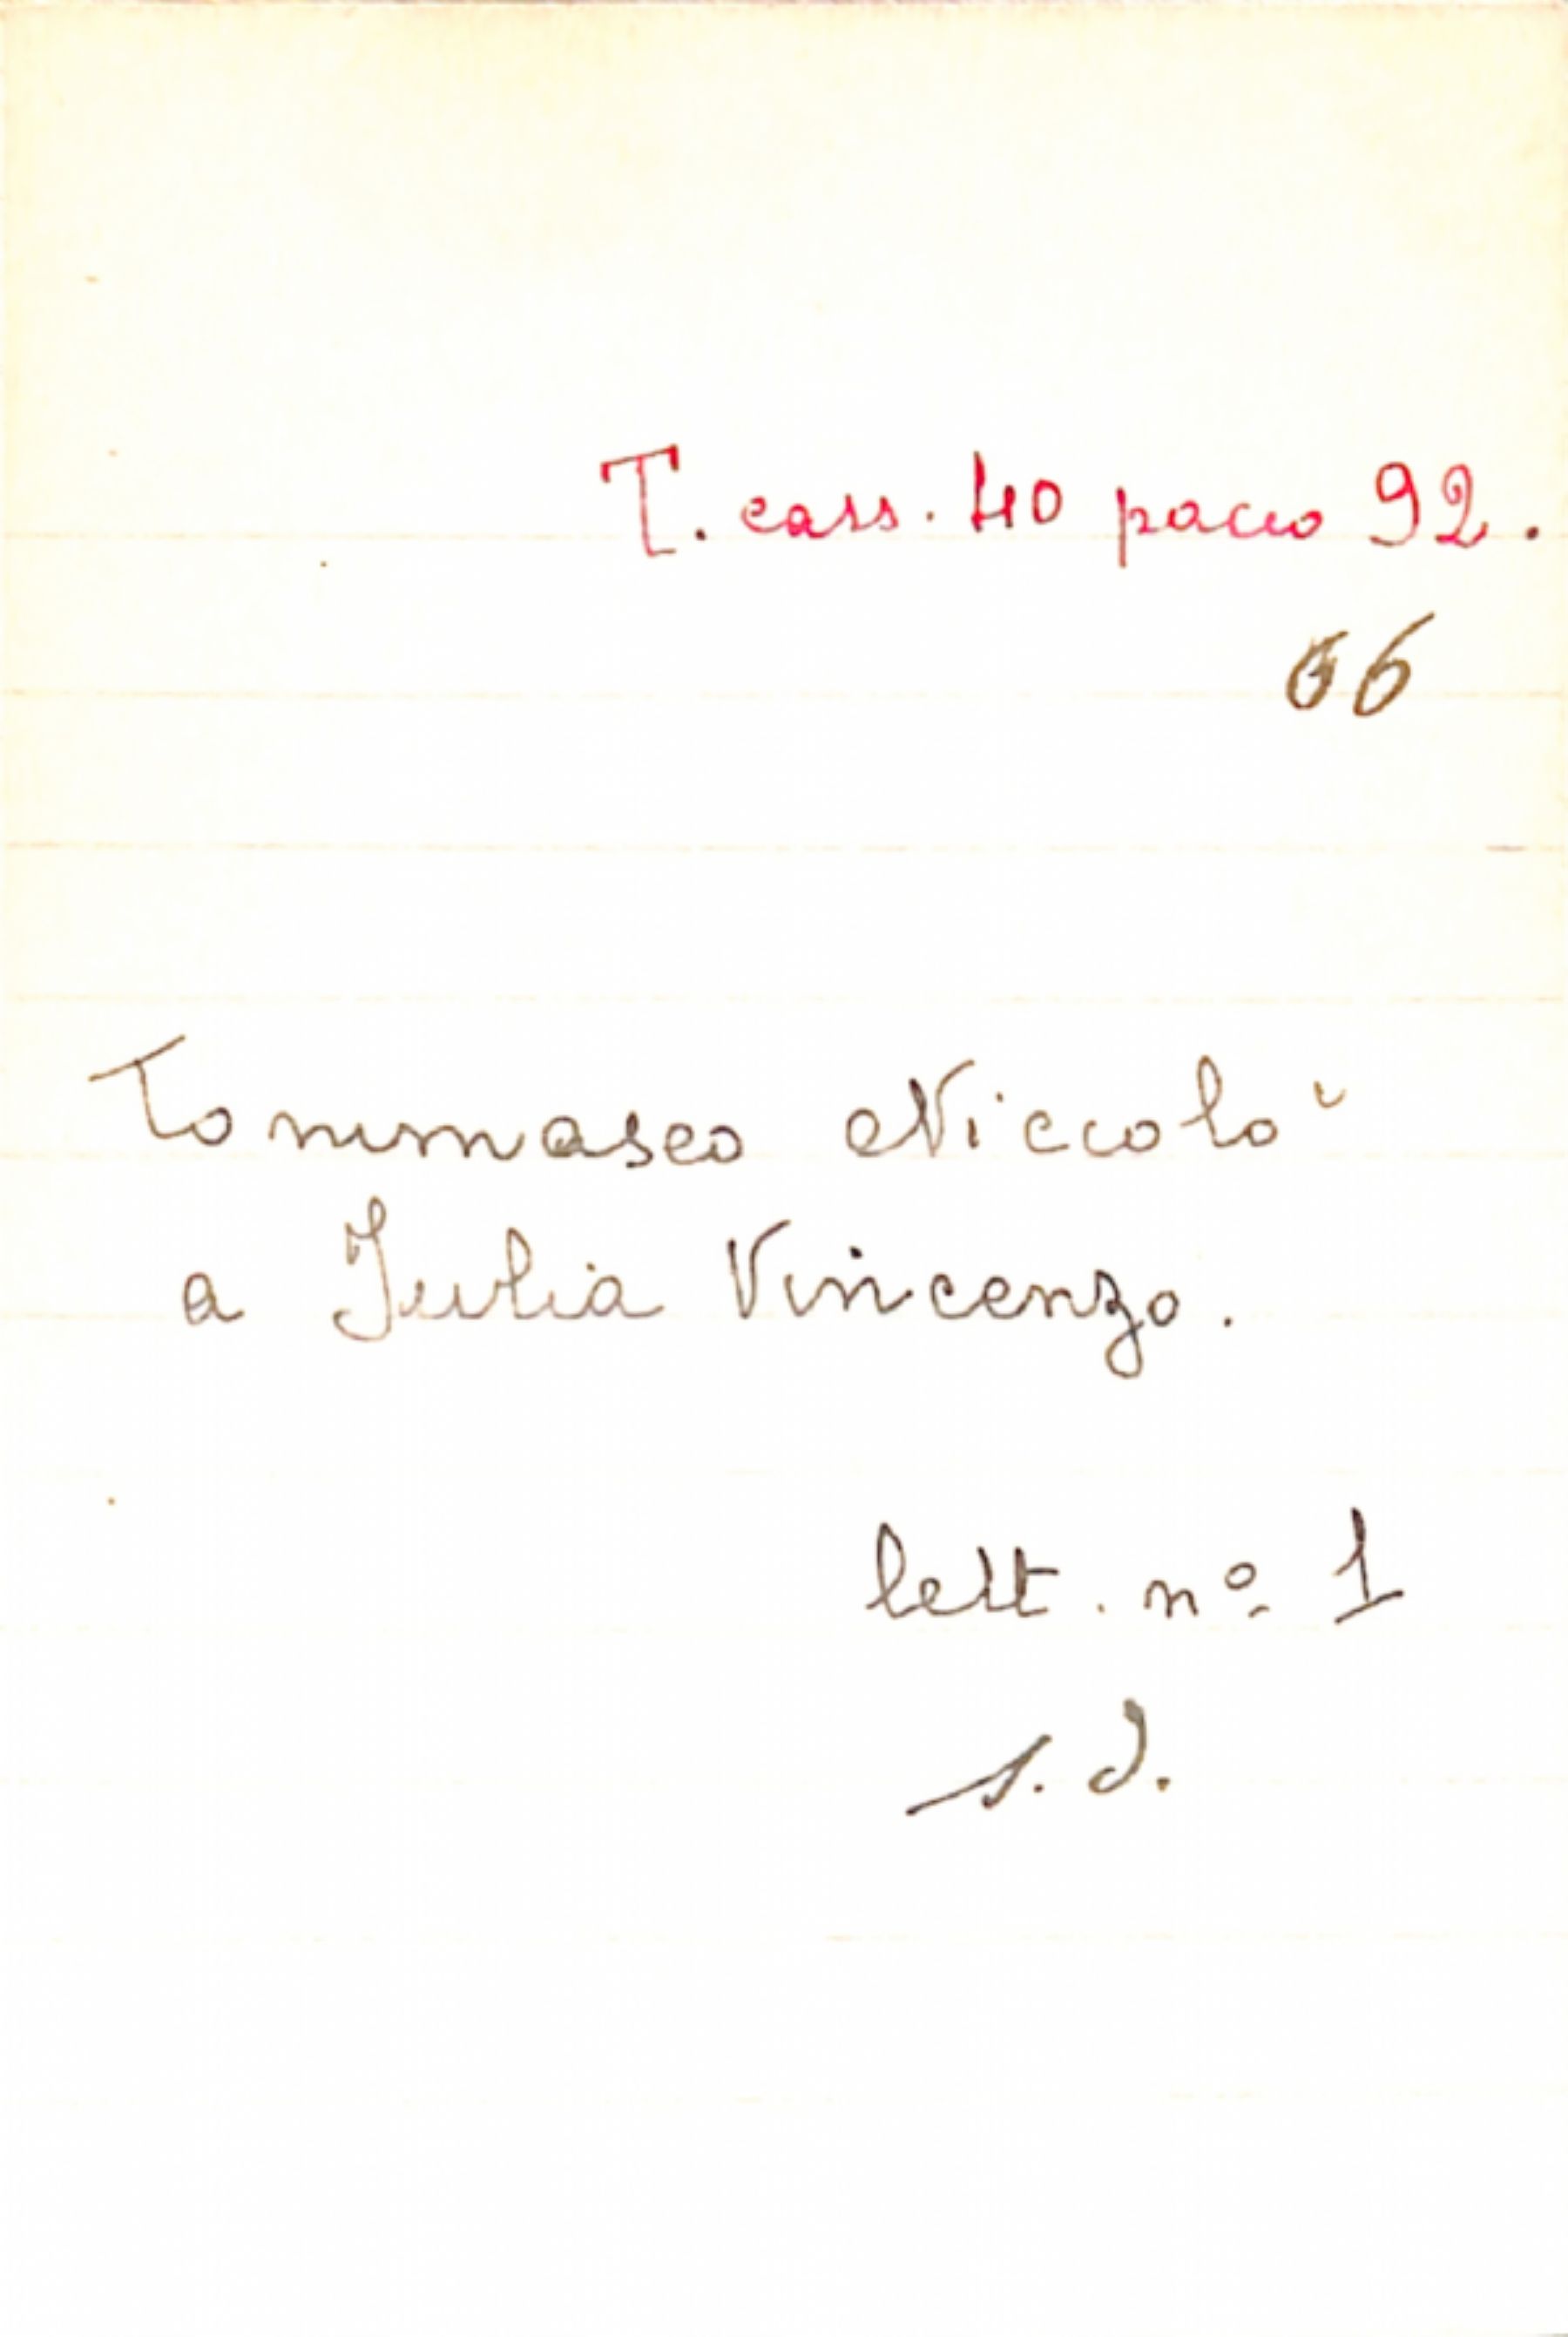 T. cass. 40 pacco 92.
66
Tommaseo Niccolò
a Julia Vincenzo.
lett. nº 1
s. d.